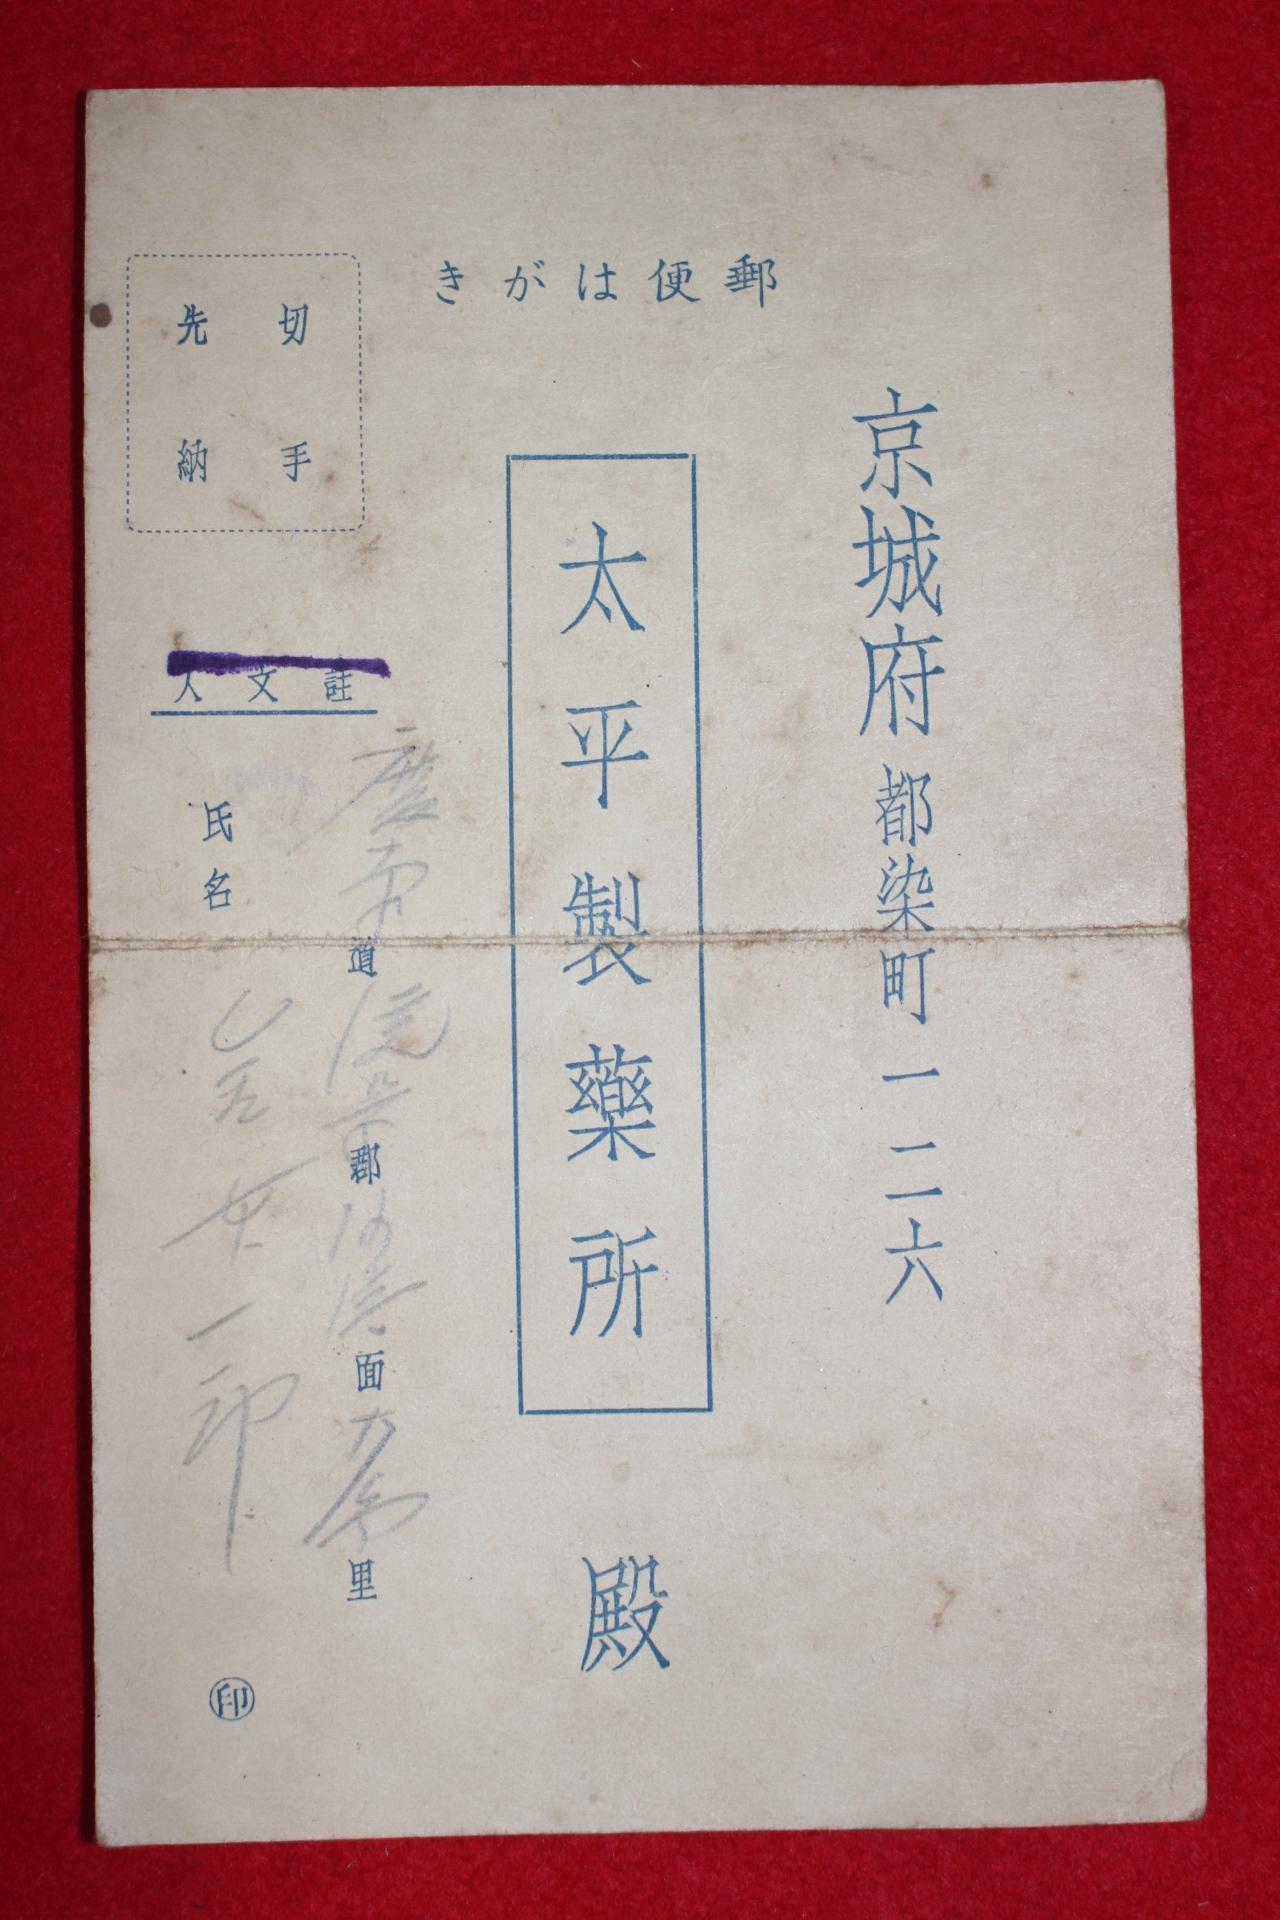 郵便はがき
京城府都染町一二六
太平製藥所
殿
切手
先納
註文人
慶南道 郡 面 里
氏名 一郎
印